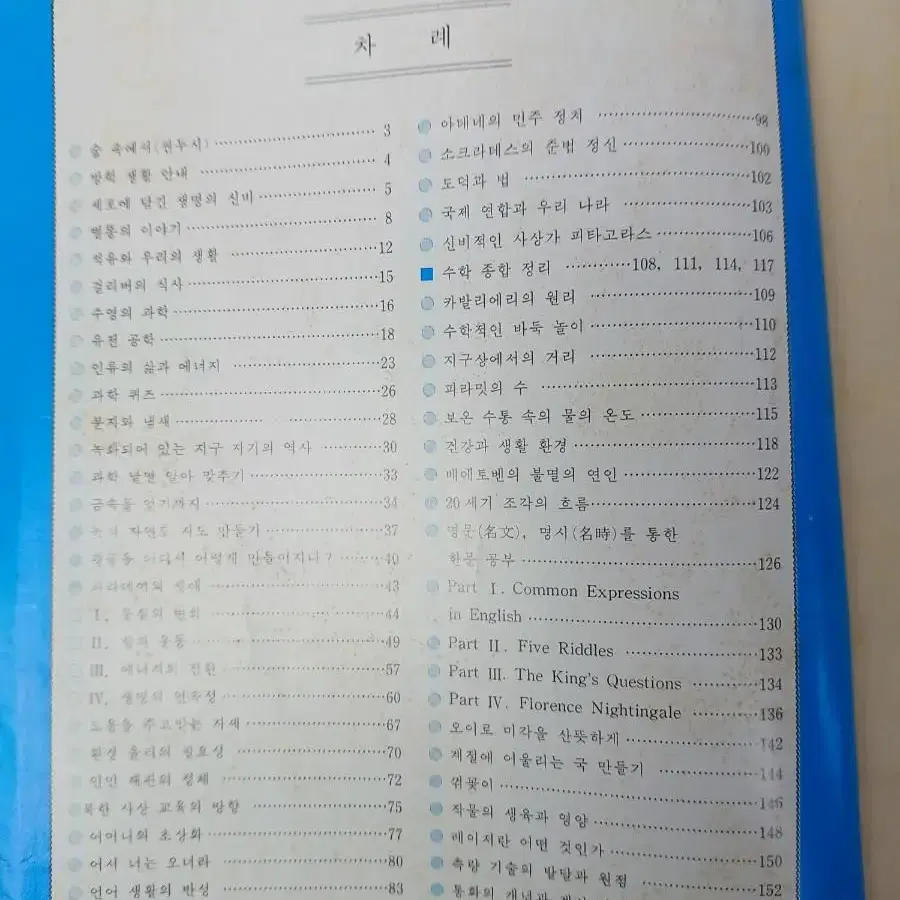 차 례
숲 속에서(권두시) 3
방학 생활 안내 4
세포에 담긴 생명의 신비 5
멸종의 이야기 8
석유와 우리의 생활 12
걸리버의 식사 15
수영의 과학 16
유전 공학 18
인류의 삶과 에너지 23
과학 퀴즈 26
분자와 냄새 28
녹화되어 있는 지구 자기의 역사 30
과학 낱말 알아 맞추기 33
금속을 얻기까지 34
자연도 지도 만들기 37
어디서 어떻게 만들어지나? 40
43
I. 물질의 변화 44
II. 힘과 운동 49
III. 에너지의 전환 57
IV. 생명의 연속성 60
도움을 주고받는 자세 67
환경 윤리의 필요성 70
72
북한 사상 교육의 방향 75
어머니의 초상화 77
어서 너는 오너라 80
언어 생활의 반성 83
아테네의 민주 정치 98
소크라테스의 준법 정신 100
도덕과 법 102
국제 연합과 우리 나라 103
신비적인 사상가 피타고라스 106
수학 종합 정리 108, 111, 114, 117
카발리에리의 원리 109
수학적인 바둑 놀이 110
지구상에서의 거리 112
피라밋의 수 113
보온 수통 속의 물의 온도 115
건강과 생활 환경 118
베에토벤의 불멸의 연인 122
20세기 조각의 흐름 124
명문(名文), 명시(名時)를 통한
한문 공부 126
Part I. Common Expressions
in English 130
Part II. Five Riddles 133
Part III. The King's Questions 134
Part IV. Florence Nightingale 136
오이로 미각을 산뜻하게 142
계절에 어울리는 국 만들기 144
꺾꽂이 146
작물의 생육과 영양 148
레이저란 어떤 것인가 150
측량 기술의 발달과 원점 152
통화의 개념과